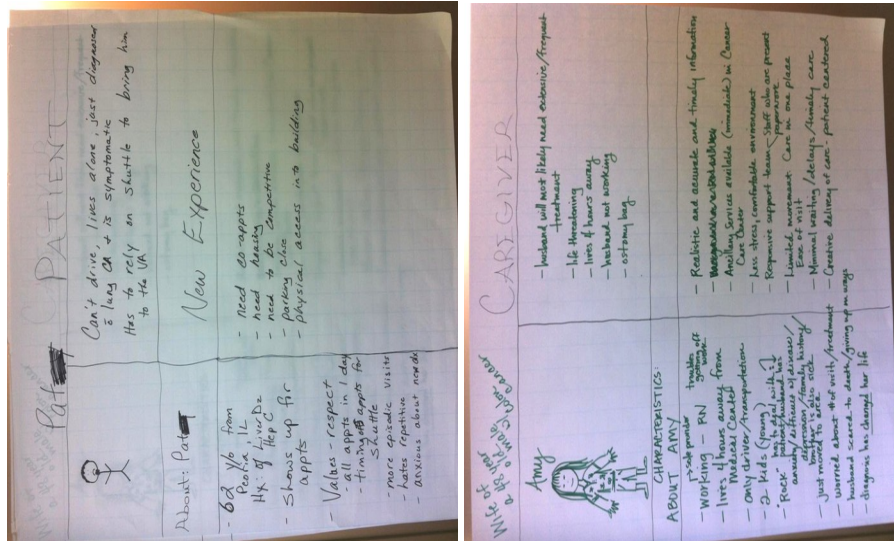 Pat
PATIENT
Can't drive, lives alone, just diagnosed
c̄ lung CA + is symptomatic
Has to rely on shuttle to bring him
to the VA
About: Pat
New Experience
- 62 y/o from
Peoria, IL
Hx: of Liver Dz
Hep C
- Shows up for
appts
- Values - respect
- all appts in 1 day
- timing of appts for
shuttle
- more episodic visits
- hates repetitive
- anxious about new dx
- need co-appts
- need housing
- need to be competitive
- parking close
- physical access into building
Wife of
a 48 year
old male
CAREGIVER
Amy
- husband will most likely need extensive/frequent
treatment
- life threatening
- lives 2 hours away
- husband not working
- ostomy bag
CHARACTERISTICS:
ABOUT AMY
- Working - RN
trouble
getting off
work
- lives 2 hours away from
Medical Center
- only driver/transportation
- 2 kids (young)
- "Rock"
depression/family history/
brother is also sick
- just moved to area
- worried about # of visits/treatment
- husband scared to death/giving up on ways
- diagnosis has changed her life
- Realistic and accurate and timely information
- Ancillary Services available (immediate) in Cancer
Care Center
- Less stress, comfortable environment
- Responsive support team - Staff who are present
paperwork
- Limited movement. Care in one place
Ease of visit
- Minimal waiting/delays/timely care
- Creative delivery of care - patient centered